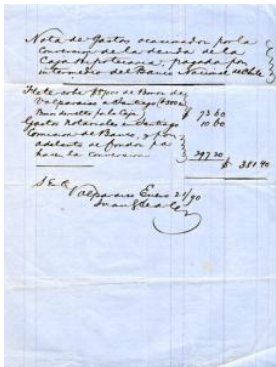 Nota de Gastos ocasionados por la
Conversion de la deuda de la
Caja Hipotecaria, pagada por
intermedio del Banco Nacional de Chile
Flete sobre de Bonos de
Valparaiso a Santiago
Bonos por la Caja $ 73 60
Gastos Notariales en Santiago 10 60
Comision de Banco, y por
adelanto de fondos pa
hacer la conversion 297 20
$ 381 40
S. E. O.
Valparaiso Enero 21/90